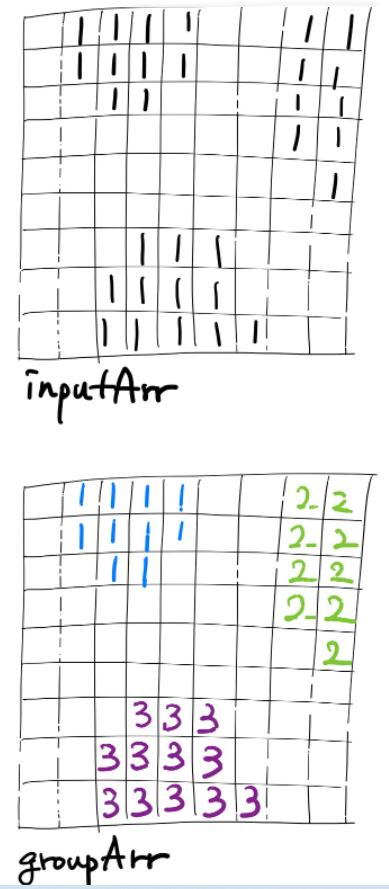 1 1 1 1 1 1
1 1 1 1 1 1
1 1 1 1
1 1
1
1 1 1
1 1 1 1
1 1 1 1 1
inputArr
1 1 1 1 2 2
1 1 1 1 2 2
1 1 2 2
2 2
2
3 3 3
3 3 3 3
3 3 3 3 3
groupArr